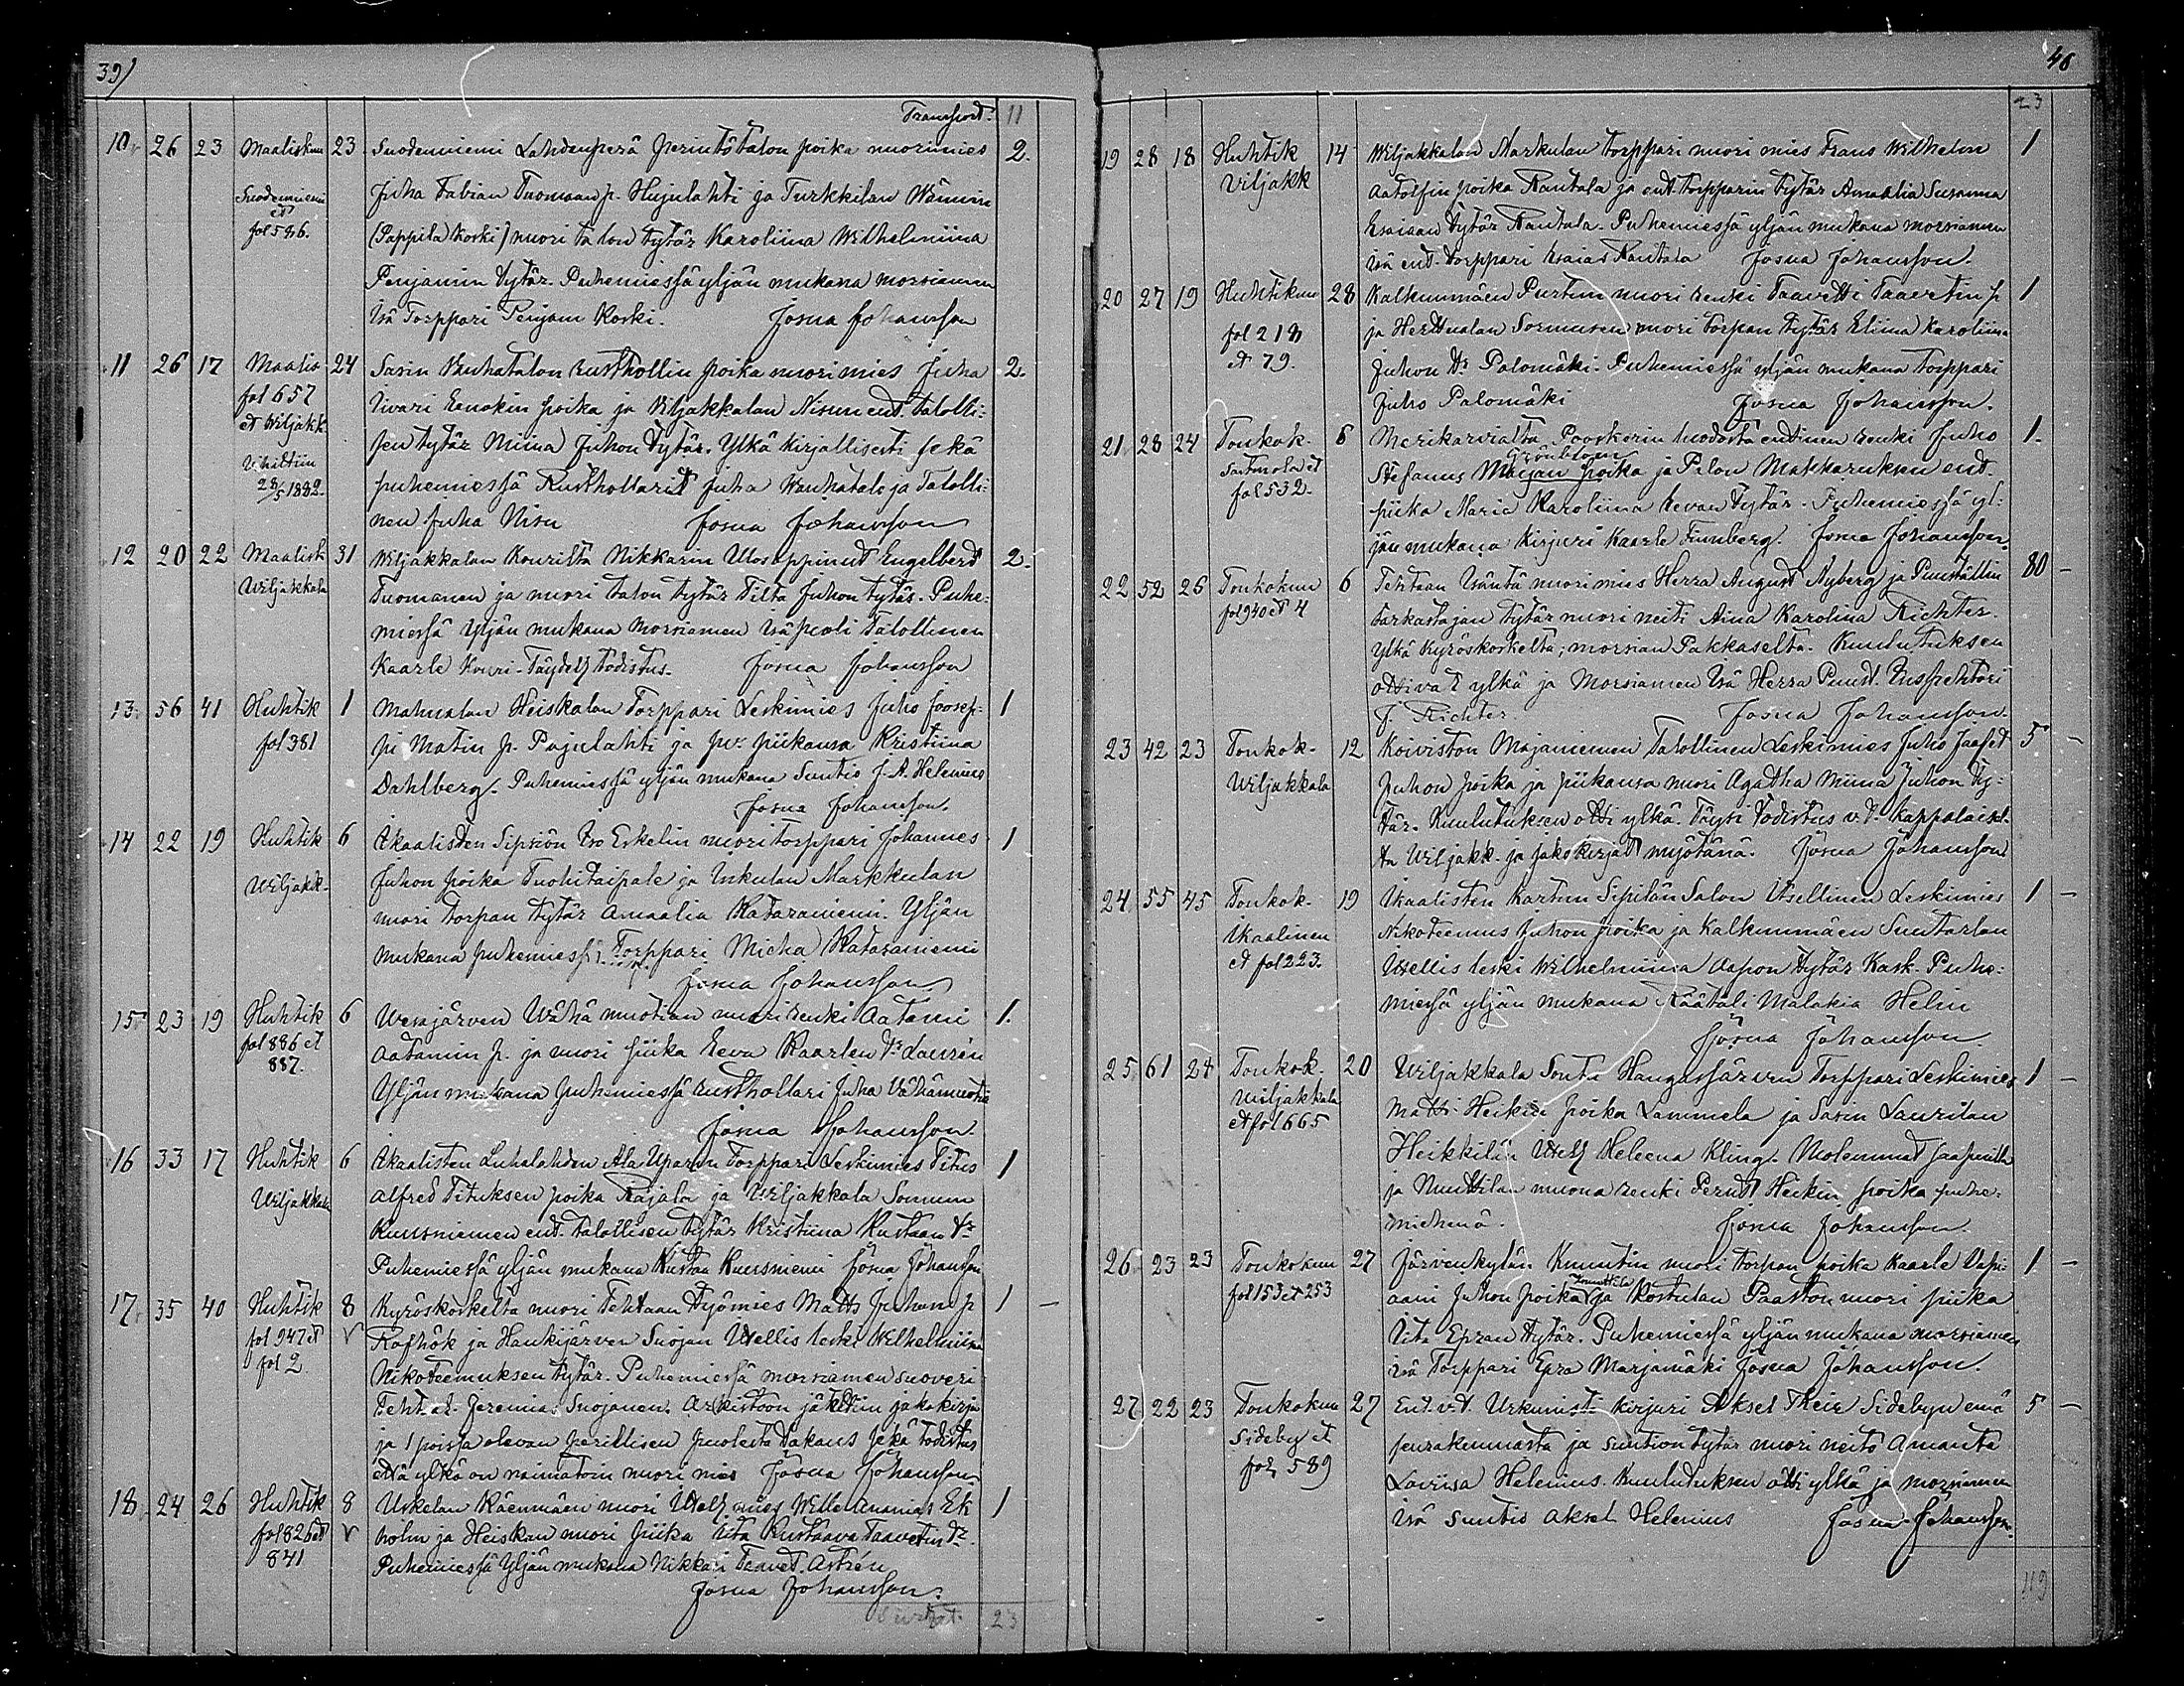 39)
Transport. 11
10 26 23 Maaliskuu 23 Suodenniemi Lahdenperä perintötalon poika nuorimies 2.
Suodenniemi Juha Fabian Tuomaan p. Hujulahti ja Turkkilan
et
fol 586. (Pappila Koski) nuori talon tytär Karoliina Wilhelmiina
Penjamin tytär. Puhemiessä yljän mukana morsiamen
Isä Torppari Penjam Koski. Josua Johansson
11 26 17 Maalis 24 Sasin Wanhatalon rusthollin poika nuorimies Juha 2.
fol 657 Iivari Eenokin poika ja Viljakkalan Nisun ent. talolli-
et Wiljakk.
sen tytär Miina Juhon tytär. Ylkä kirjallisesti sekä
Vihittiin
28/5 1882. puhemiessä Rusthollarit Juha Wanhatalo ja Talolli-
nen Juha Nisu Josua Johansson
12 20 22 Maalisk 31 Wiljakkalan Kourilta Nikkarin Ulosoppinut Engelbert 2.
Wiljakkala Tuomanen ja nuori talon tytär Tilta Juhon tytär. Puhe-
miessä Yljän mukana Morsiamen Isäpuoli Talollinen
Kaarle Kouri. Todistus. Josua Johansson
13 56 41 Huhtik 1 Mahnalan Heiskalan Torppari Leskimies Juho Joosep- 1
fol 381 pi Matin p. Pajulahti ja piikansa Kristiina
Dahlberg. Puhemiessä yljän mukana Suntio J. A. Helenius
Josua Johansson.
14 22 19 Huhtik 6 Ikaalisten Sipsiön Iso Erkelin nuori torppari Johannes 1
Wiljakk. Juhon poika Tuohitaipale ja Inkulan Markkulan
nuori torpan tytär Amaalia Kataraniemi. Yljän
mukana puhemiessä Torppari Micha Kataraniemi
Josua Johansson
15 23 19 Huhtik 6 Wesajärven Wähä nuotian nuori renki Aatami 1.
fol 886 et Aatamin p. ja nuori piika Eeva Kaarlen tr Laurén
887.
Yljän mukana puhemiessä rusthollari Juha Vähänuotia
Josua Johansson.
16 33 17 Huhtik 6 Ikaalisten Luhalahden Ala Uparin Torppari Leskimies Titus 1
Wiljakkala Alfred Tituksen poika Rajala ja Wiljakkala
Kuusniemen ent. talollisen tytär Kristiina Kustaan tr
Puhemiessä yljän mukana Kustaa Kuusniemi Josua Johansson
17 35 40 Huhtik 8 Kyröskoskelta nuori Tehtaan työmies Matts Juhan p 1 —
fol 947 et V ja Haukijärven Suojan Itsellis leski Wilhelmiina
fol 2
Nikodeemuksen tytär. Puhemiessä morsiamen suoveri
Teht. Jeremia Suojanen. Arkistoon jätettiin jakokirja
ja 1 poissa olevan perillisen puolesta takaus sekä todistus
että ylkä on naimatoin nuori mies Josua Johansson
18 24 26 Huhtik 8 Uskelan Räenmäen nuori Itsell mies Wille Ananias Ek 1
fol 826 et V holm ja Heiskan nuori piika Iita Kustaava Taavetin tr.
841
Puhemiessä Yljän mukana Nikkari Taavet. Astrén
Josua Johansson.
23
40
23
19 28 18 Huhtik 14 Wiljakkalan Markulan torppari nuori mies Frans Wilhelm 1
Viljakk Aatolfin poika Rantala ja ent. torpparin tytär Amaalia Susanna
Esaiaan tytär Rantala. Puhemiessä yljän mukana morsiamen
Isä ent. torppari Esaias Rantala Josua Johansson.
20 27 19 Huhtikuu 28 Kalkunmäen Purtun nuori renki Taavetti Taavetin p 1
fol 218 ja Herttualan Sormusen nuori torpan tytär Eliina Karoliina
et 79. Juhon tr Palomäki. Puhemiessä yljän mukana torppari
Juho Palomäki Josua Johansson.
21 28 24 Toukok. 6 Merikarvialta Pooskerin luodosta entinen renki Juho 1.
Grönblom
et Stefanus Marjan poika ja Pelon Makkaruksen ent.
fol 532. piika Maria Karoliina Eevan tytär. Puhemiessä yl-
jän mukana Kirjuri Kaarle Finnberg. Josua Johansson.
22 52 26 Toukokuu 6 Tehtaan Isäntä nuori mies Herra August Nyberg ja Puutällin 80 —
fol 940 et 4 tarkastajan tytär nuori neiti Aina Karolina Richter.
Ylkä Kyröskoskelta; morsian Pakkaselta. Kuulutuksen
ottivat ylkä ja Morsiamen Isä Herra Puust. Inspehtori
J. Richter. Josua Johansson.
23 42 23 Toukok. 12 Koiviston Majaniemen Talollinen Leskimies Juho Jaafet 5 —
Wiljakkala Juhon poika ja piikansa nuori Agatha Miina Juhon ty-
tär. Kuulutuksen otti ylkä. Täysi Todistus v. t. kappalaisel-
ta Wiljakk. ja jakokirjat myötänä. Josua Johansson
24 55 45 Toukok. 19 Ikaalisten Kartun Sipilän Salon Itsellinen Leskimies 1 —
Ikaalinen Nikodeemus Juhon poika ja Kalkunmäen Suutarlan
et fol 223. Itsellis leski Wilhelmiina Aapon tytär Kask. Puhe-
miessä yljän mukana Räätäli Malakia Helin
Josua Johansson.
25 61 24 Toukok. 20 Wiljakkala Sontu Haugasjärven Torppari Leskimies 1 —
Wiljakkala Matti Heikin poika Lammela ja Sasin Laurilan
et fol 665
Heikkilän Itsell Heleena Kling. Molemmat saapuvilla
ja Nuuttilan muona renki Pertti Heikin poika puhe-
miehenä. Josua Johansson.
26 23 23 Toukokuu 27 Järvenkylän Knuutin nuori torpan poika Kaarle Vapi- 1 —
fol 153 et 253 aani Juhon poika ja Kostulan Paaston nuori piika
Iita Epran tytär. Puhemiessä yljän mukana morsiamen
isä Torppari Epra Marjamäki Josua Johansson.
27 22 23 Toukokuu 27 Ent. v.t. Urkunisti kirjuri Aksel Their Sidebyn emä 5 —
Sideby et seurakunnasta ja suntion tytär nuori neito Amanta
fol 589
Loviisa Helenius. Kuulutuksen otti ylkä ja morsiamen
Isä suntio Aksel Helenius Josua Johansson.
119